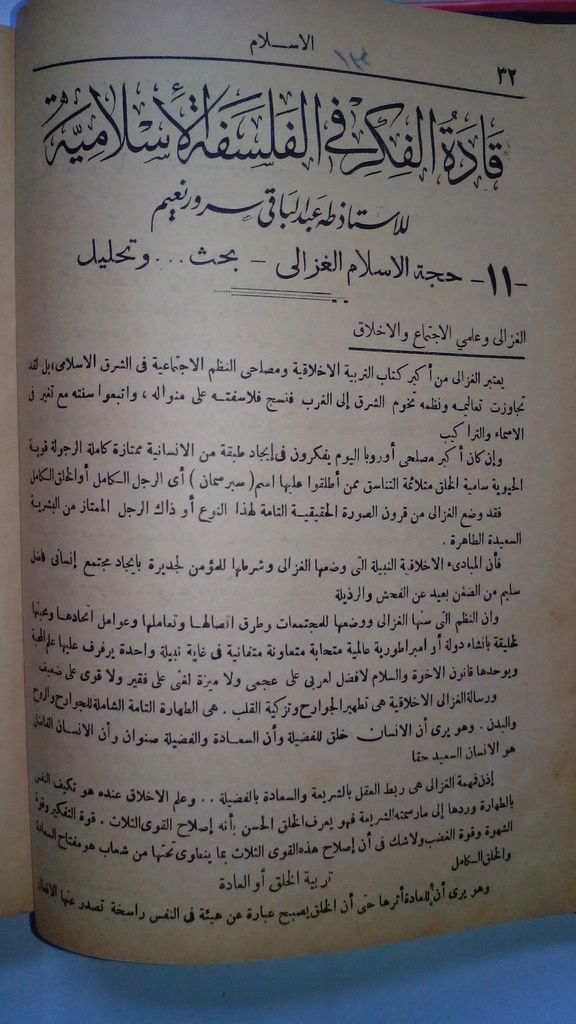 الاســلام
١٣٢
٣٢
قَادَةُ الفِكْرِ فِي الفَلسَفَةِ الأِسْلَامِيَّة
للاستاذ طه عَبد البَاقى سرور نعيم
-١١- حجة الاسلام الغزالى - بحث ... وتحليل
الغزالى وعلمى الاجتماع والاخلاق
يعتبر الغزالى من أكبر كتاب التربية الاخلاقية ومصلحى النظم الاجتماعية فى الشرق الاسلامى، بل لقد
تجاوزت تعاليمه ونظمه تخوم الشرق إلى الغرب فنسج فلاسفته على منواله ، واتبعوا سنته مع تغير فى
الاسماء والتراكيب
وإن كان أكبر مصلحى أوروبا اليوم يفكرون فى إيجاد طبقة من الانسانية ممتازة كاملة الرجولة قوية
الحيوية سامية الخلق متلائمة التناسق ممن أطلقوا عليها اسم ( سبرسمان ) أى الرجل الكامل أو الخلق الكامل
فقد وضع الغزالى من قرون الصورة الحقيقية التامة لهذا النوع أو ذاك الرجل الممتاز من البشرية
السعيدة الطاهرة .
فأن المبادىء الاخلاقية النبيلة التى وضعها الغزالى وشرعها للمؤمن لجديرة بايجاد مجتمع إنسانى فاضل
سليم من الضغن بعيد عن الفحش والرذيلة
وان النظم التى سنها الغزالى ووضعها للمجتمعات وطرق اتصالها وتعاملها وعوامل اتحادها ومحبتها
لخليقة بانشاء دولة أو امبراطورية عالمية متحابة متعاونة متفانية فى غاية نبيلة واحدة يرفرف عليها علم المحبة
ويوحدها قانون الاخوة والسلام لافضل لعربى على عجمى ولا ميزة لغنى على فقير ولا قوى على ضعيف
ورسالة الغزالى الاخلاقية هى تطهير الجوارح وتزكية القلب . هى الطهارة التامة الشاملة للجوارح والروح
والبدن . وهو يرى أن الانسان خلق للفضيلة وأن السعادة والفضيلة صنوان وأن الانسان الفاضل
هو الانسان السعيد حقا
إذن فهمة الغزالى هى ربط العقل بالشريعة والسعادة بالفضيلة .. وعلم الاخلاق عنده هو تكيف النفس
بالطهارة وردها إلى مارسمته الشريعة فهو يعرف الخلق الحسن بأنه إصلاح القوى الثلاث . قوة التفكير وقوة
الشهوة وقوة الغضب ولاشك فى أن إصلاح هذه القوى الثلاث بما ينطوى تحتها من شعاب هو مفتاح السعادة
والخلق الكامل
تربية الخلق أو العادة
وهو يرى أن للعادة أثرها حتى أن الخلق يصبح عبارة عن هيئة فى النفس راسخة تصدر عنها الافعال